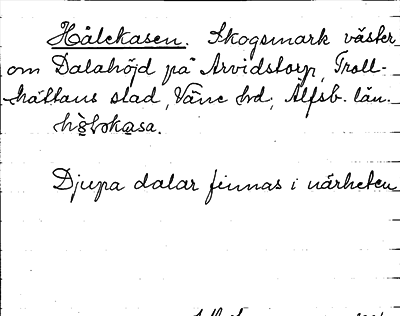 Hålekasen. Skogsmark väster
om Dalahöjd på Arvidstorp, Troll-
hättans stad, Väne hd, Älfsb. län.

Djupa dalar finnas i närheten